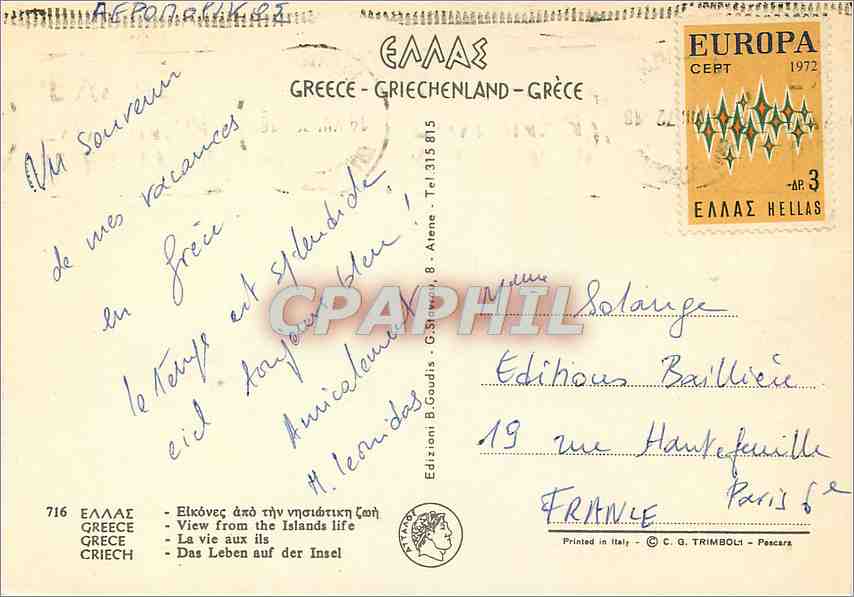 ΑΕΡΟΠΟΡΙΚΩΣ
ΕΛΛΑΣ
GREECE - GRIECHENLAND - GRÈCE
EUROPA
CEPT 1972
-ΔΡ. 3
ΕΛΛΑΣ HELLAS
Un souvenir
de mes vacances
en Grèce.
le temps est splendide
ciel toujours bleu !
Amicalement
M. Leonidas
CPAPHIL
Edizioni B. Goudis - G. Stavrou, 8 - Atene - Tel 315 815
Mme Solange
Editions Baillière
19 rue Hautefeuille
Paris 6e
FRANCE
716 ΕΛΛΑΣ - Εἰκόνες ἀπὸ τὴν νησιώτικη ζωὴ
GREECE - View from the Islands life
GRECE - La vie aux ils
GRIECH - Das Leben auf der Insel
ΑΤΤΑΛΟΣ
Printed in Italy - © C. G. TRIMBOLI - Pescara